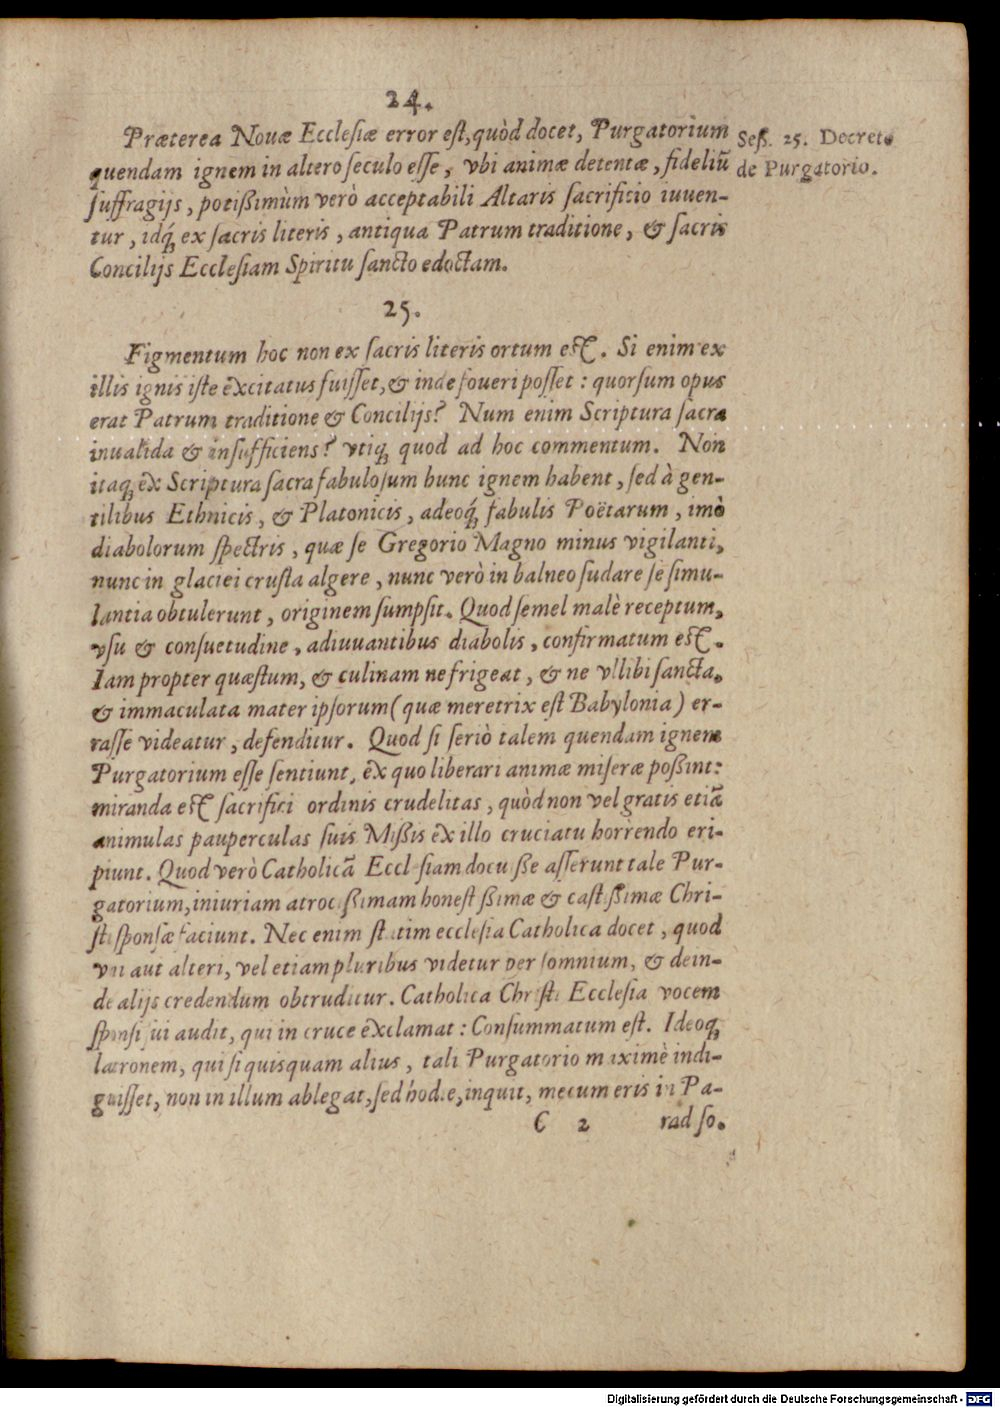 24.
Præterea Nouæ Ecclesiæ error est, quòd docet, Purgatorium
quendam ignem in altero seculo esse, vbi animæ detentæ, fideliũ
suffragijs, potißimùm verò acceptabili Altaris sacrificio iuuen-
tur, idq́; ex sacris literis, antiqua Patrum traditione, & sacris
Concilijs Ecclesiam Spiritu sancto edoctam.
Seß. 25. Decreto
de Purgatorio.
25.
Figmentum hoc non ex sacris literis ortum est. Si enim ex
illis ignis iste excitatus fuisset, & inde foueri posset: quorsum opus
erat Patrum traditione & Concilijs? Num enim Scriptura sacra
inualida & insufficiens? vtiq; quod ad hoc commentum. Non
itaq; ex Scriptura sacra fabulosum hunc ignem habent, sed à gen-
tilibus Ethnicis, & Platonicis, adeoq́; fabulis Poëtarum, imò
diabolorum spectris, quæ se Gregorio Magno minus vigilanti,
nunc in glaciei crusta algere, nunc verò in balneo sudare se simu-
lantia obtulerunt, originem sumpsit. Quod semel malè receptum,
vsu & consuetudine, adiuuantibus diabolis, confirmatum est.
Iam propter quæstum, & culinam ne frigeat, & ne vllibi sancta
& immaculata mater ipsorum (quæ meretrix est Babylonia) er-
rasse videatur, defenditur. Quod si seriò talem quendam ignem
Purgatorium esse sentiunt, ex quo liberari animæ miseræ poßint:
miranda est sacrifici ordinis crudelitas, quòd non vel gratis etiã
animulas pauperculas suis Mißis ex illo cruciatu horrendo eri-
piunt. Quod verò Catholicã Ecclesiam docuisse asserunt tale Pur-
gatorium, iniuriam atrocißimam honestißimæ & castißimæ Chri-
sti sponsæ faciunt. Nec enim statim ecclesia Catholica docet, quod
vni aut alteri, vel etiam pluribus videtur per somnium, & dein-
de alijs credendum obtruditur. Catholica Christi Ecclesia vocem
sponsi sui audit, qui in cruce exclamat: Consummatum est. Ideoq;
latronem, qui si quisquam alius, tali Purgatorio maximè indi-
guisset, non in illum ablegat, sed hodie, inquit, mecum eris in Pa-
C 2 radiso.
Digitalisierung gefördert durch die Deutsche Forschungsgemeinschaft - DFG